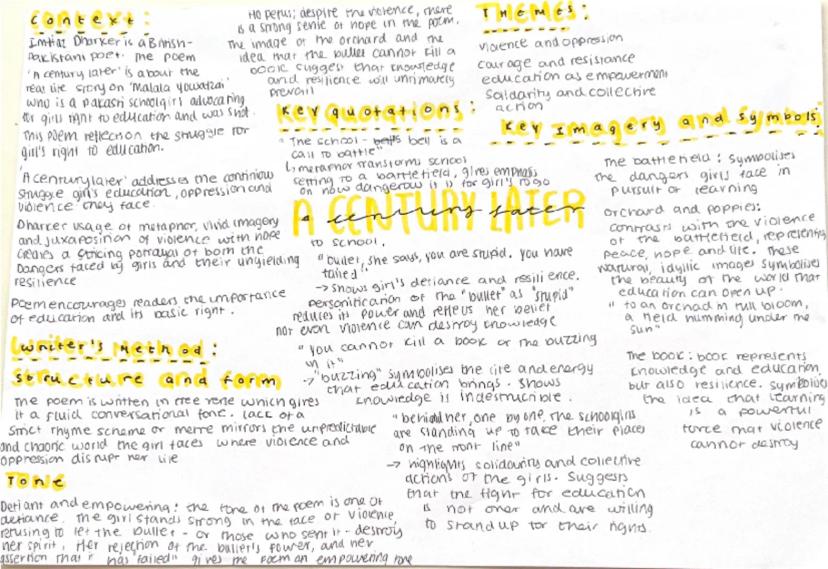 Context:
Imtiaz Dharker is a British-
Pakistani poet. The poem
'A century later' is about the
real life story on 'Malala Yousafzai'
who is a pakastni schoolgirl advocating
for girls right to education and was shot.
This poem reflection the struggle for
girl's right to education.
'A century later' addresses the continious
struggle girl's education, oppression and
violence they face.
Dharker usage of metaphor, vivid imagery
and juxaposition of violence with hope
creates a striking portrayal of both the
dangers faced by girls and their unyielding
resilience
Poem encourages readers the importance
of education and its basic right.
Writer's Method:
Structure and form
The poem is written in free verse which gives
it a fluid conversational tone. lack of a
strict rhyme scheme or metre mirrors the unpredictable
and chaotic world the girl faces where violence and
oppression disrupt her life
Tone
Defiant and empowering: the tone of the poem is one of
defiance. The girl stands strong in the face of violence
refusing to let the bullet - or those who sent it - destroy
her spirit. Her rejection of the bullet's power, and her
assertion that it "has failed" gives the poem an empowering tone
Hopeful: despite the violence, there
is a strong sense of hope in the poem.
The image of the orchard and the
idea that the bullet cannot kill a
book suggest that knowledge
and resilience will ultimately
prevail
Key Quotations:
"The school - bell is a
call to battle"
↳ metaphor transforms school
setting to a battlefield, gives emphasis
on how dangerous it is for girl's to go
A CENTURY LATER
a century later
to school.
"bullet, she says, you are stupid. you have
failed"
→ shows girl's defiance and resilience.
personification of the "bullet" as "stupid"
reduces its power and reflects her belief
not even violence can destroy knowledge
"you cannot kill a book or the buzzing
in it"
→ "buzzing" symbolises the life and energy
that education brings. shows
knowledge is indestructible.
"behind her, one by one, the schoolgirls
are standing up to take their places
on the front line"
→ highlights solidarity and collective
actions of the girls. Suggests
that the fight for education
is not over and are willing
to stand up for their rights.
Themes:
violence and oppression
courage and resistance
education as empowerment
solidarity and collective
action
Key Imagery and symbols:
The battlefield: symbolises
the dangers girls face in
pursuit of learning
orchard and poppies:
contrasts with the violence
of the battlefield, representing
peace, hope and life. These
natural, idyllic images symbolises
the beauty of the world that
education can open up.
"to an orchad in full bloom,
a field humming under the
sun"
The book: book represents
knowledge and education,
but also resilience. symbolises
the idea that learning
is a powerful
force that violence
cannot destroy